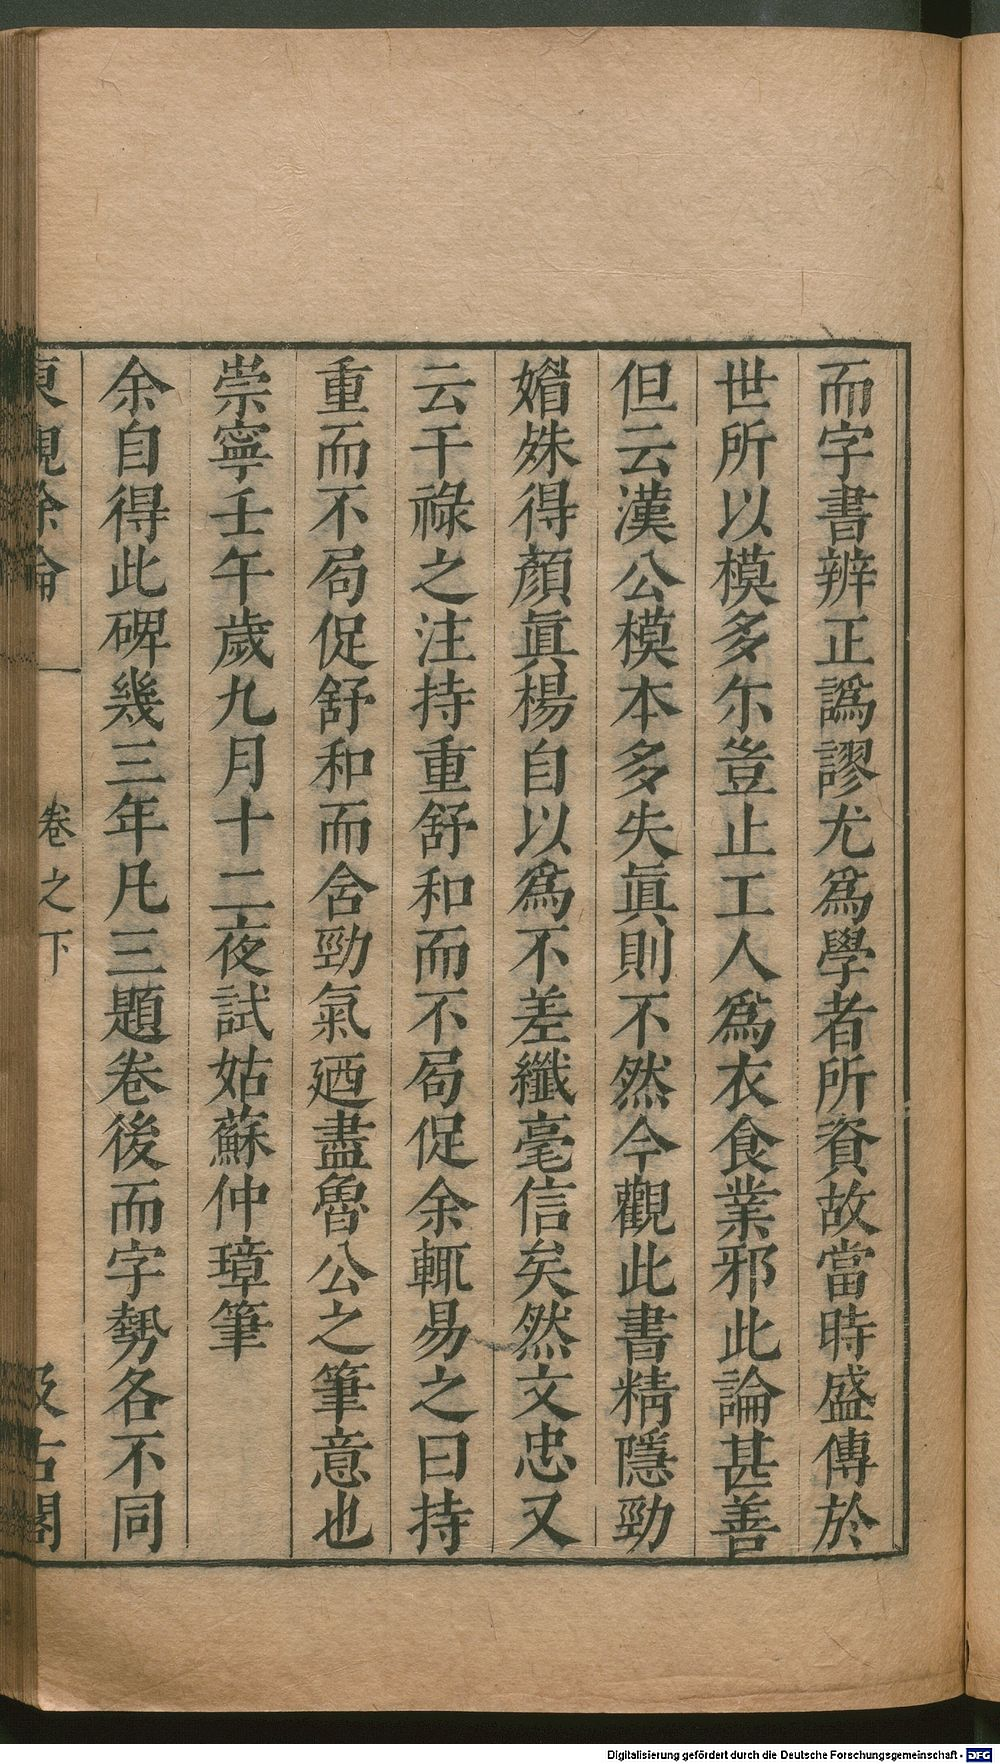 而字書辨正譌謬尤爲學者所資故當時盛傳於
世所以模多尓豈止工人爲衣食業邪此論甚善
但云漢公模本多失眞則不然今觀此書精隱勁
媘姝得顏眞楊自以爲不差纖毫信矣然文忠又
云干祿之注持重舒和而不局促余輒易之曰持
重而不局促舒和而含勁氣廼盡魯公之筆意也
崇寧壬午歲九月十二夜試姑蘇仲璋筆
余自得此碑幾三年凡三題卷後而字勢各不同
東觀餘論 卷之下 汲古閣
Digitalisierung gefördert durch die Deutsche Forschungsgemeinschaft - DFG